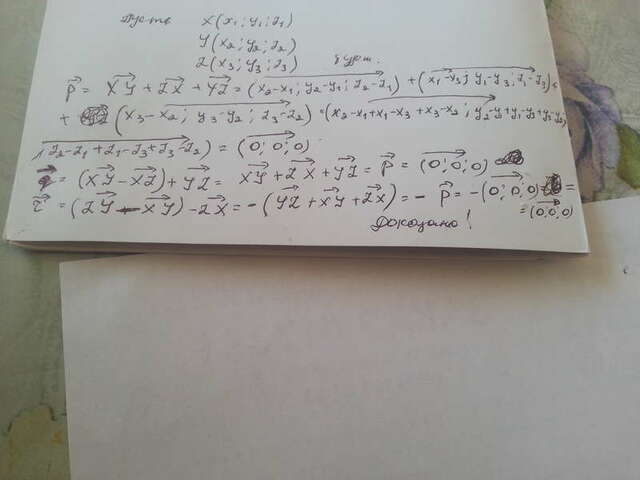 Пусть X(x₁; y₁; z₁)
Y(x₂; y₂; z₂)
Z(x₃; y₃; z₃)
p⃗ = XY + ZX + YZ = (x₂-x₁; y₂-y₁; z₂-z₁) + (x₁-x₃; y₁-y₃; z₁-z₃) +
+ (x₃-x₂; y₃-y₂; z₃-z₂) = (x₂-x₁+x₁-x₃+x₃-x₂; y₂-y₁+y₁-y₃+y₃-y₂;
z₂-z₁+z₁-z₃+z₃-z₂) = (0; 0; 0)
= (XY - XZ) + YZ = XY + ZX + YZ = p⃗ = (0; 0; 0)
r⃗ = (ZY - XY) - ZX = -(YZ + XY + ZX) = - p⃗ = -(0; 0; 0) =
= (0; 0; 0)
Доказано!